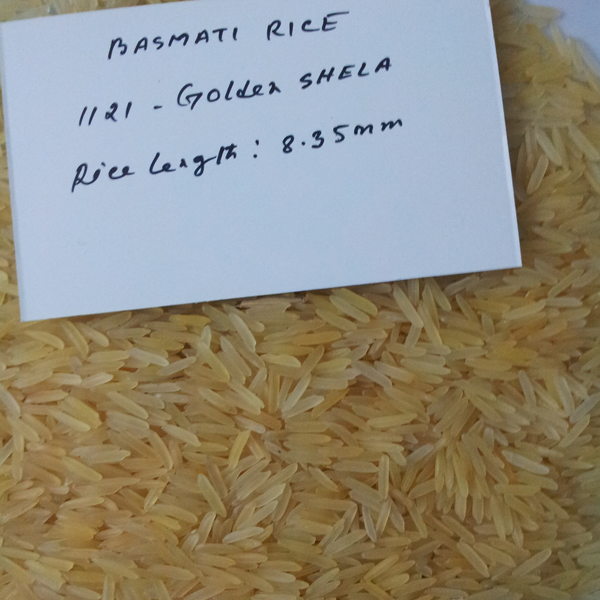 BASMATI RICE
1121 - Golden SHELA
Rice length : 8.35mm